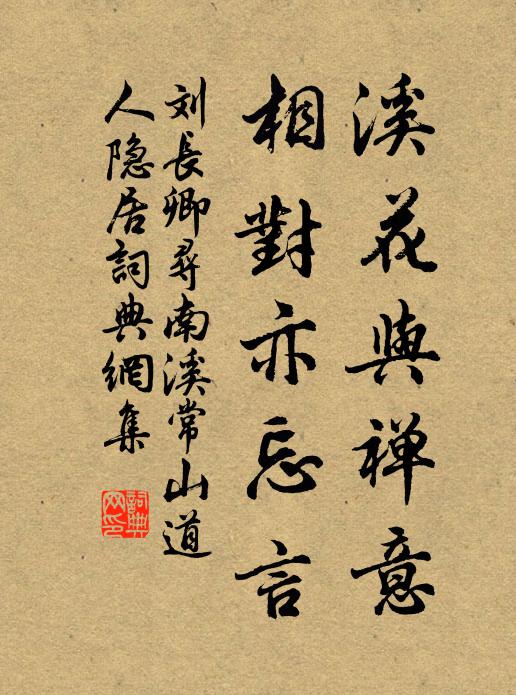 溪花與禅意
相對亦忘言
刘長卿尋南溪常山道
人隐居詞典網集
詞典
网印